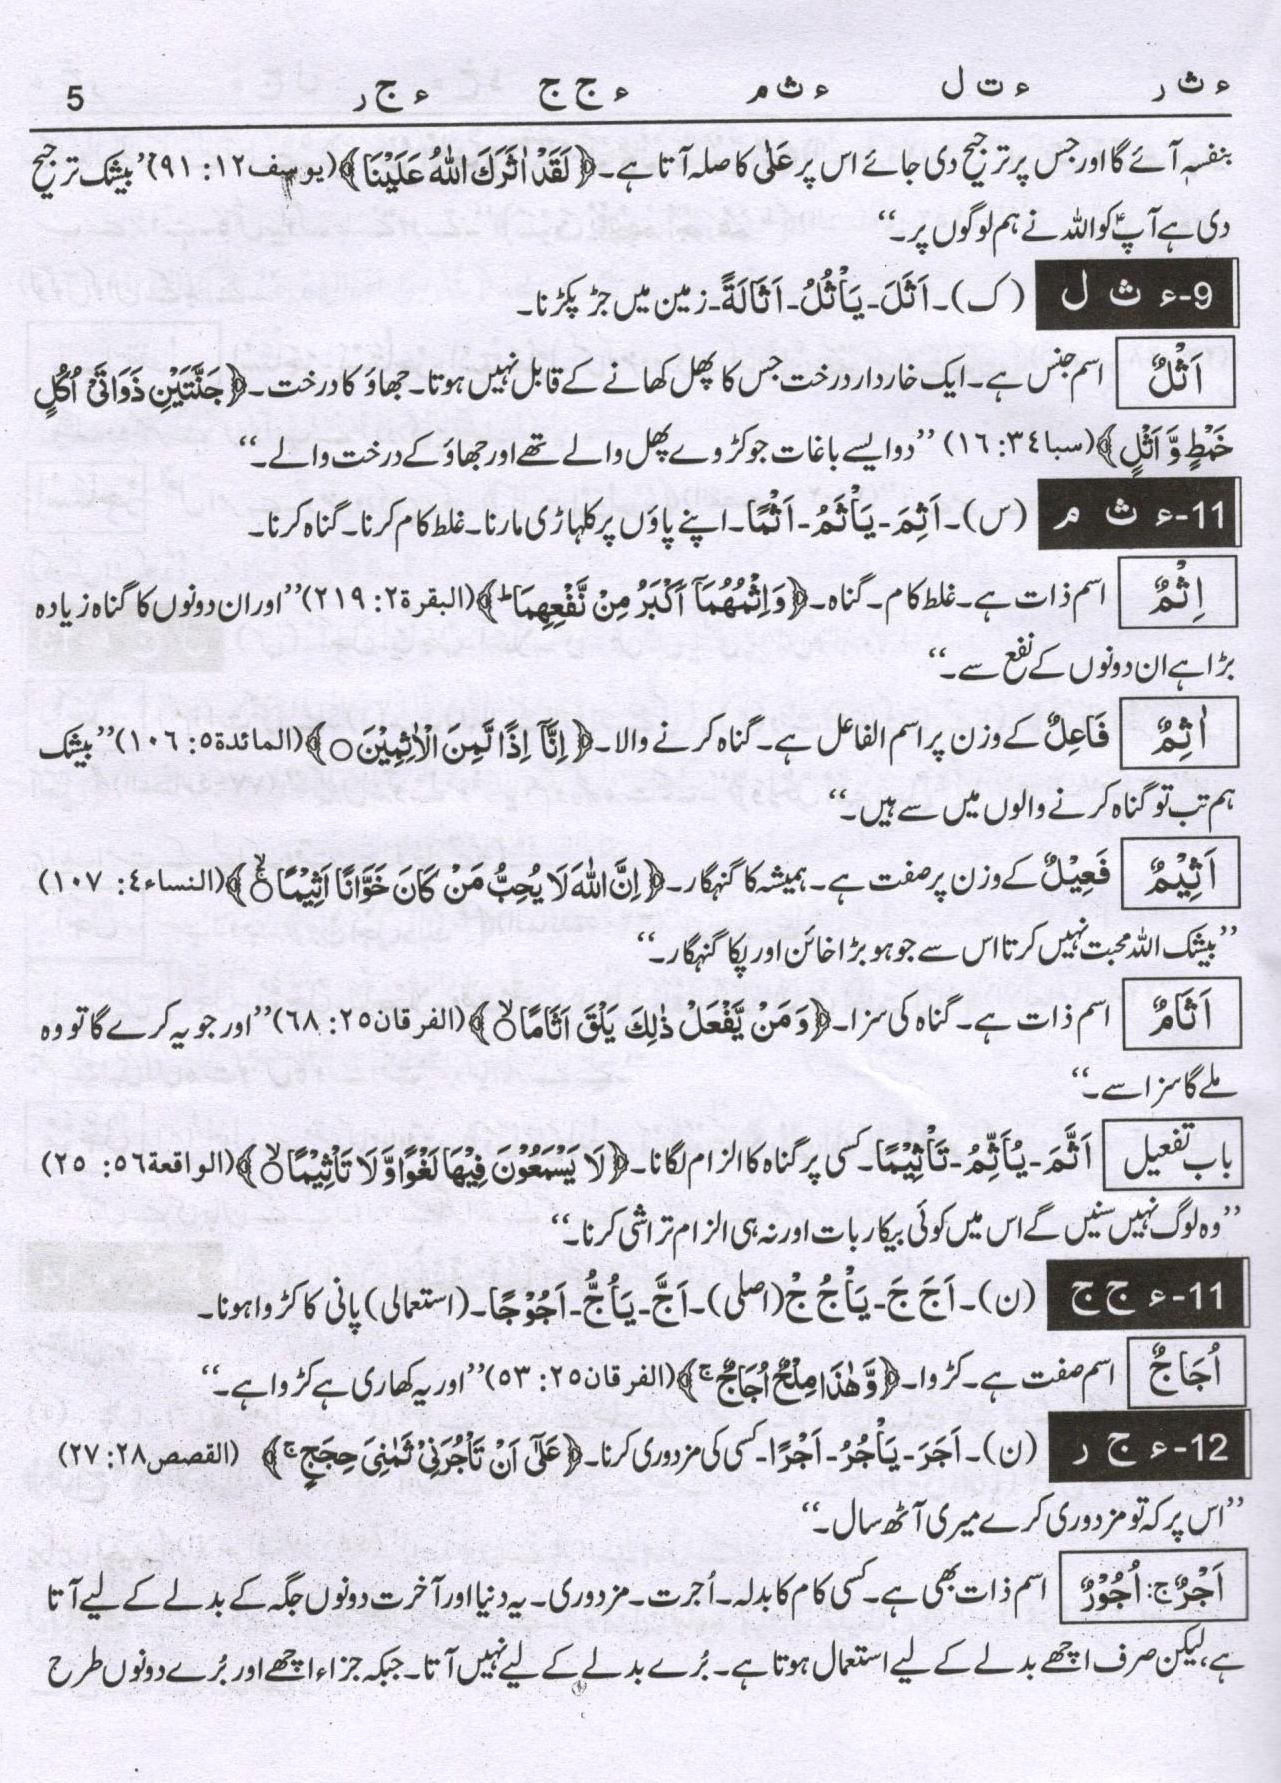 ء ث ر ء ت ل ء ث م ء ج ج ء ج ر 5
بنفسہٖ آئے گا اور جس پر ترجیح دی جائے اس پر عَلٰی کا صلہ آتا ہے۔ ﴿لَقَدْ اٰثَرَكَ اللّٰهُ عَلَيْنَا﴾ (یوسف١٢: ٩١) ’’بیشک ترجیح
دی ہے آپؑ کو اللہ نے ہم لوگوں پر۔‘‘
9-ء ث ل (ک)۔ اَثَلَ۔ يَأْثُلُ۔ اَثَالَةً۔ زمین میں جڑ پکڑنا۔
اَثْلٌ اسم جنس ہے۔ ایک خاردار درخت جس کا پھل کھانے کے قابل نہیں ہوتا۔ جھاؤ کا درخت۔ ﴿جَنَّتَيْنِ ذَوَاتَیْ اُكُلٍ
خَمْطٍ وَّ اَثْلٍ﴾ (سبا٣٤: ١٦) ’’دو ایسے باغات جو کڑوے پھل والے تھے اور جھاؤ کے درخت والے۔‘‘
11-ء ث م (س)۔ اَثِمَ۔ يَأْثَمُ۔ اَثْمًا۔ اپنے پاؤں پر کلہاڑی مارنا۔ غلط کام کرنا۔ گناہ کرنا۔
اِثْمٌ اسم ذات ہے۔ غلط کام۔ گناہ۔ ﴿وَاِثْمُهُمَآ اَكْبَرُ مِنْ نَّفْعِهِمَا ؕ﴾ (البقرة٢: ٢١٩) ’’اور ان دونوں کا گناہ زیادہ
بڑا ہے ان دونوں کے نفع سے۔‘‘
اٰثِمٌ فَاعِلٌ کے وزن پر اسم الفاعل ہے۔ گناہ کرنے والا۔ ﴿اِنَّآ اِذًا لَّمِنَ الْاٰثِمِيْنَ ○﴾ (المائدة٥: ١٠٦) ’’بیشک
ہم تب تو گناہ کرنے والوں میں سے ہیں۔‘‘
اَثِيْمٌ فَعِيْلٌ کے وزن پر صفت ہے۔ ہمیشہ کا گنہگار۔ ﴿اِنَّ اللّٰهَ لَا يُحِبُّ مَنْ كَانَ خَوَّانًا اَثِيْمًا ○ۙ﴾ (النساء٤: ١٠٧)
’’بیشک اللہ محبت نہیں کرتا اس سے جو ہو بڑا خائن اور پکا گنہگار۔‘‘
اَثَامٌ اسم ذات ہے۔ گناہ کی سزا۔ ﴿وَمَنْ يَّفْعَلْ ذٰلِكَ يَلْقَ اَثَامًا ○ۙ﴾ (الفرقان٢٥: ٦٨) ’’اور جو یہ کرے گا تو وہ
ملے گا سزا سے۔‘‘
باب تفعیل اَثَّمَ۔ يُأَثِّمُ۔ تَأْثِيْمًا۔ کسی پر گناہ کا الزام لگانا۔ ﴿لَا يَسْمَعُوْنَ فِيْهَا لَغْوًا وَّ لَا تَأْثِيْمًا ○ۙ﴾ (الواقعة٥٦: ٢٥)
’’وہ لوگ نہیں سنیں گے اس میں کوئی بیکار بات اور نہ ہی الزام تراشی کرنا۔‘‘
11-ء ج ج (ن)۔ اَجَجَ۔ يَأْجُجْ (اصلی)۔ اَجَّ۔ يَأُجُّ۔ اَجُوْجًا۔ (استعمالی) پانی کا کڑوا ہونا۔
اُجَاجٌ اسم صفت ہے۔ کڑوا۔ ﴿وَّهٰذَا مِلْحٌ اُجَاجٌ ۚ﴾ (الفرقان٢٥: ٥٣) ’’اور یہ کھاری ہے کڑوا ہے۔‘‘
12-ء ج ر (ن)۔ اَجَرَ۔ يَأْجُرُ۔ اَجْرًا۔ کسی کی مزدوری کرنا۔ ﴿عَلٰٓی اَنْ تَأْجُرَنِیْ ثَمٰنِیَ حِجَجٍ ۚ﴾ (القصص٢٨: ٢٧)
’’اس پر کہ تو مزدوری کرے میری آٹھ سال۔‘‘
اَجْرٌ ج: اُجُوْرٌ اسم ذات بھی ہے۔ کسی کام کا بدلہ۔ اُجرت۔ مزدوری۔ یہ دنیا اور آخرت دونوں جگہ کے بدلے کے لیے آتا
ہے، لیکن صرف اچھے بدلے کے لیے استعمال ہوتا ہے۔ بُرے بدلے کے لیے نہیں آتا۔ جبکہ جزاء اچھے اور بُرے دونوں طرح